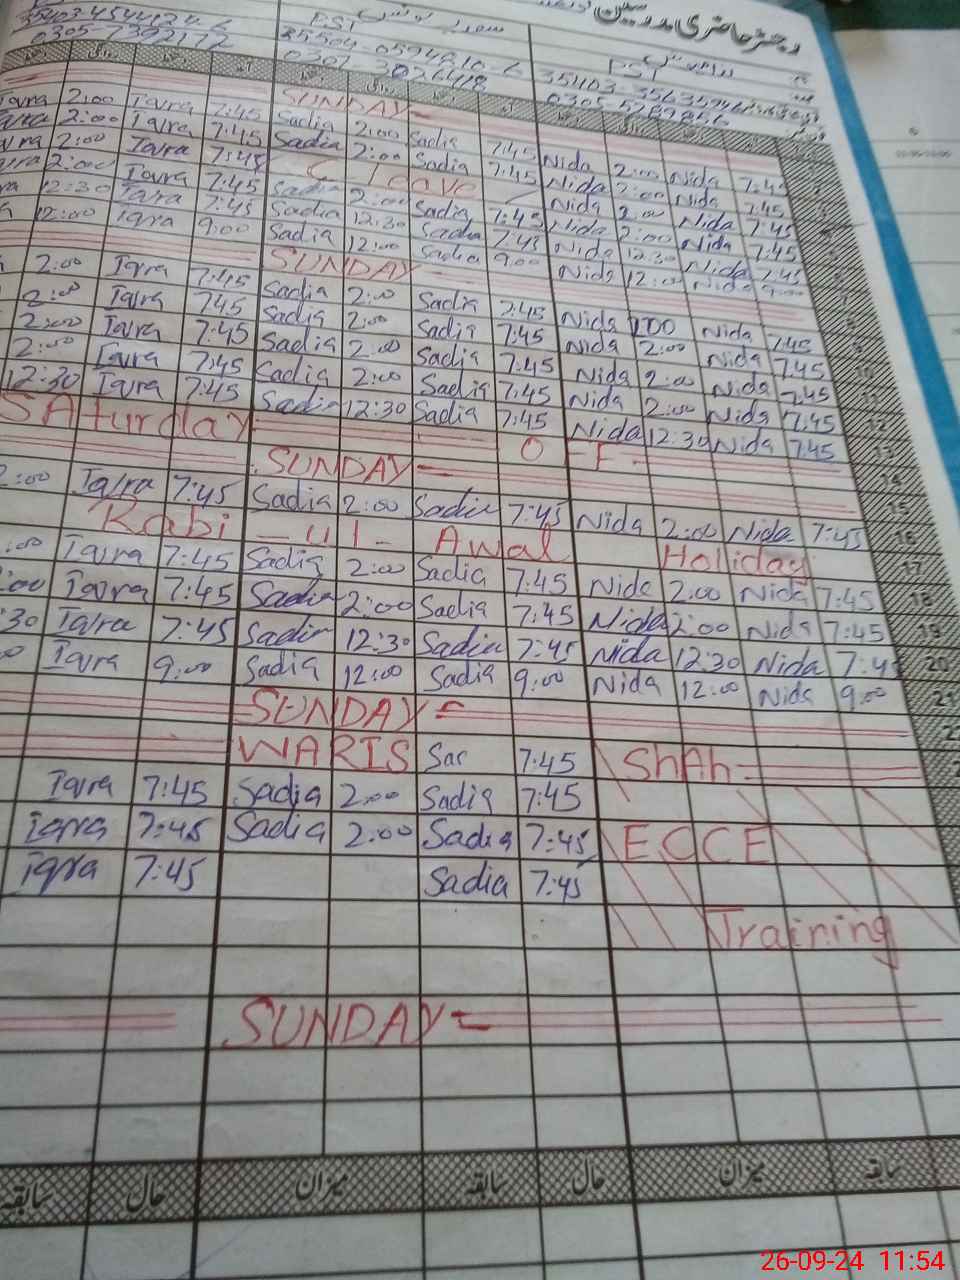 دفتر حاضری مدرسین
PST
PST
0305-7392172
SUNDAY
Iqra 2:00 Iqra 7:45 Sadia 2:00 Sadia 7:45 Nida 2:00 Nida 7:45
2:00 Iqra 7:45 Sadia 2:00 Sadia 7:45 Nida 2:00 Nida 7:45
2:00 Iqra 7:45 C Leave Nida 2:00 Nida 7:45
2:00 Iqra 7:45 Sadia 2:00 Sadia 7:45 Nida 2:00 Nida 7:45
12:30 Iqra 7:45 Sadia 12:30 Sadia 7:45 Nida 12:30 Nida 7:45
12:00 Iqra 9:00 Sadia 12:00 Sadia 9:00 Nida 12:00 Nida 9:00
SUNDAY
2:00 Iqra 7:45 Sadia 2:00 Sadia 7:45 Nida 2:00 Nida 7:45
2:00 Iqra 7:45 Sadia 2:00 Sadia 7:45 Nida 2:00 Nida 7:45
2:00 Iqra 7:45 Sadia 2:00 Sadia 7:45 Nida 2:00 Nida 7:45
2:00 Iqra 7:45 Sadia 2:00 Sadia 7:45 Nida 2:00 Nida 7:45
12:30 Iqra 7:45 Sadia 12:30 Sadia 7:45 Nida 12:30 Nida 7:45
SAturday O F F
SUNDAY
2:00 Iqra 7:45 Sadia 2:00 Sadia 7:45 Nida 2:00 Nida 7:45 16
Rabi - ul - Awal Holiday 17
:00 Iqra 7:45 Sadia 2:00 Sadia 7:45 Nida 2:00 Nida 7:45 18
:00 Iqra 7:45 Sadia 2:00 Sadia 7:45 Nida 2:00 Nida 7:45 19
:30 Iqra 7:45 Sadia 12:30 Sadia 7:45 Nida 12:30 Nida 7:45 20
Iqra 9:00 Sadia 12:00 Sadia 9:00 Nida 12:00 Nida 9:00 21
SUNDAY
WARIS Sad 7:45 ShAh
Iqra 7:45 Sadia 2:00 Sadia 7:45
Iqra 7:45 Sadia 2:00 Sadia 7:45 ECCE
Iqra 7:45 Sadia 7:45
Training
SUNDAY
سابقہ حال میزان سابقہ حال میزان سابقہ
26-09-24 11:54